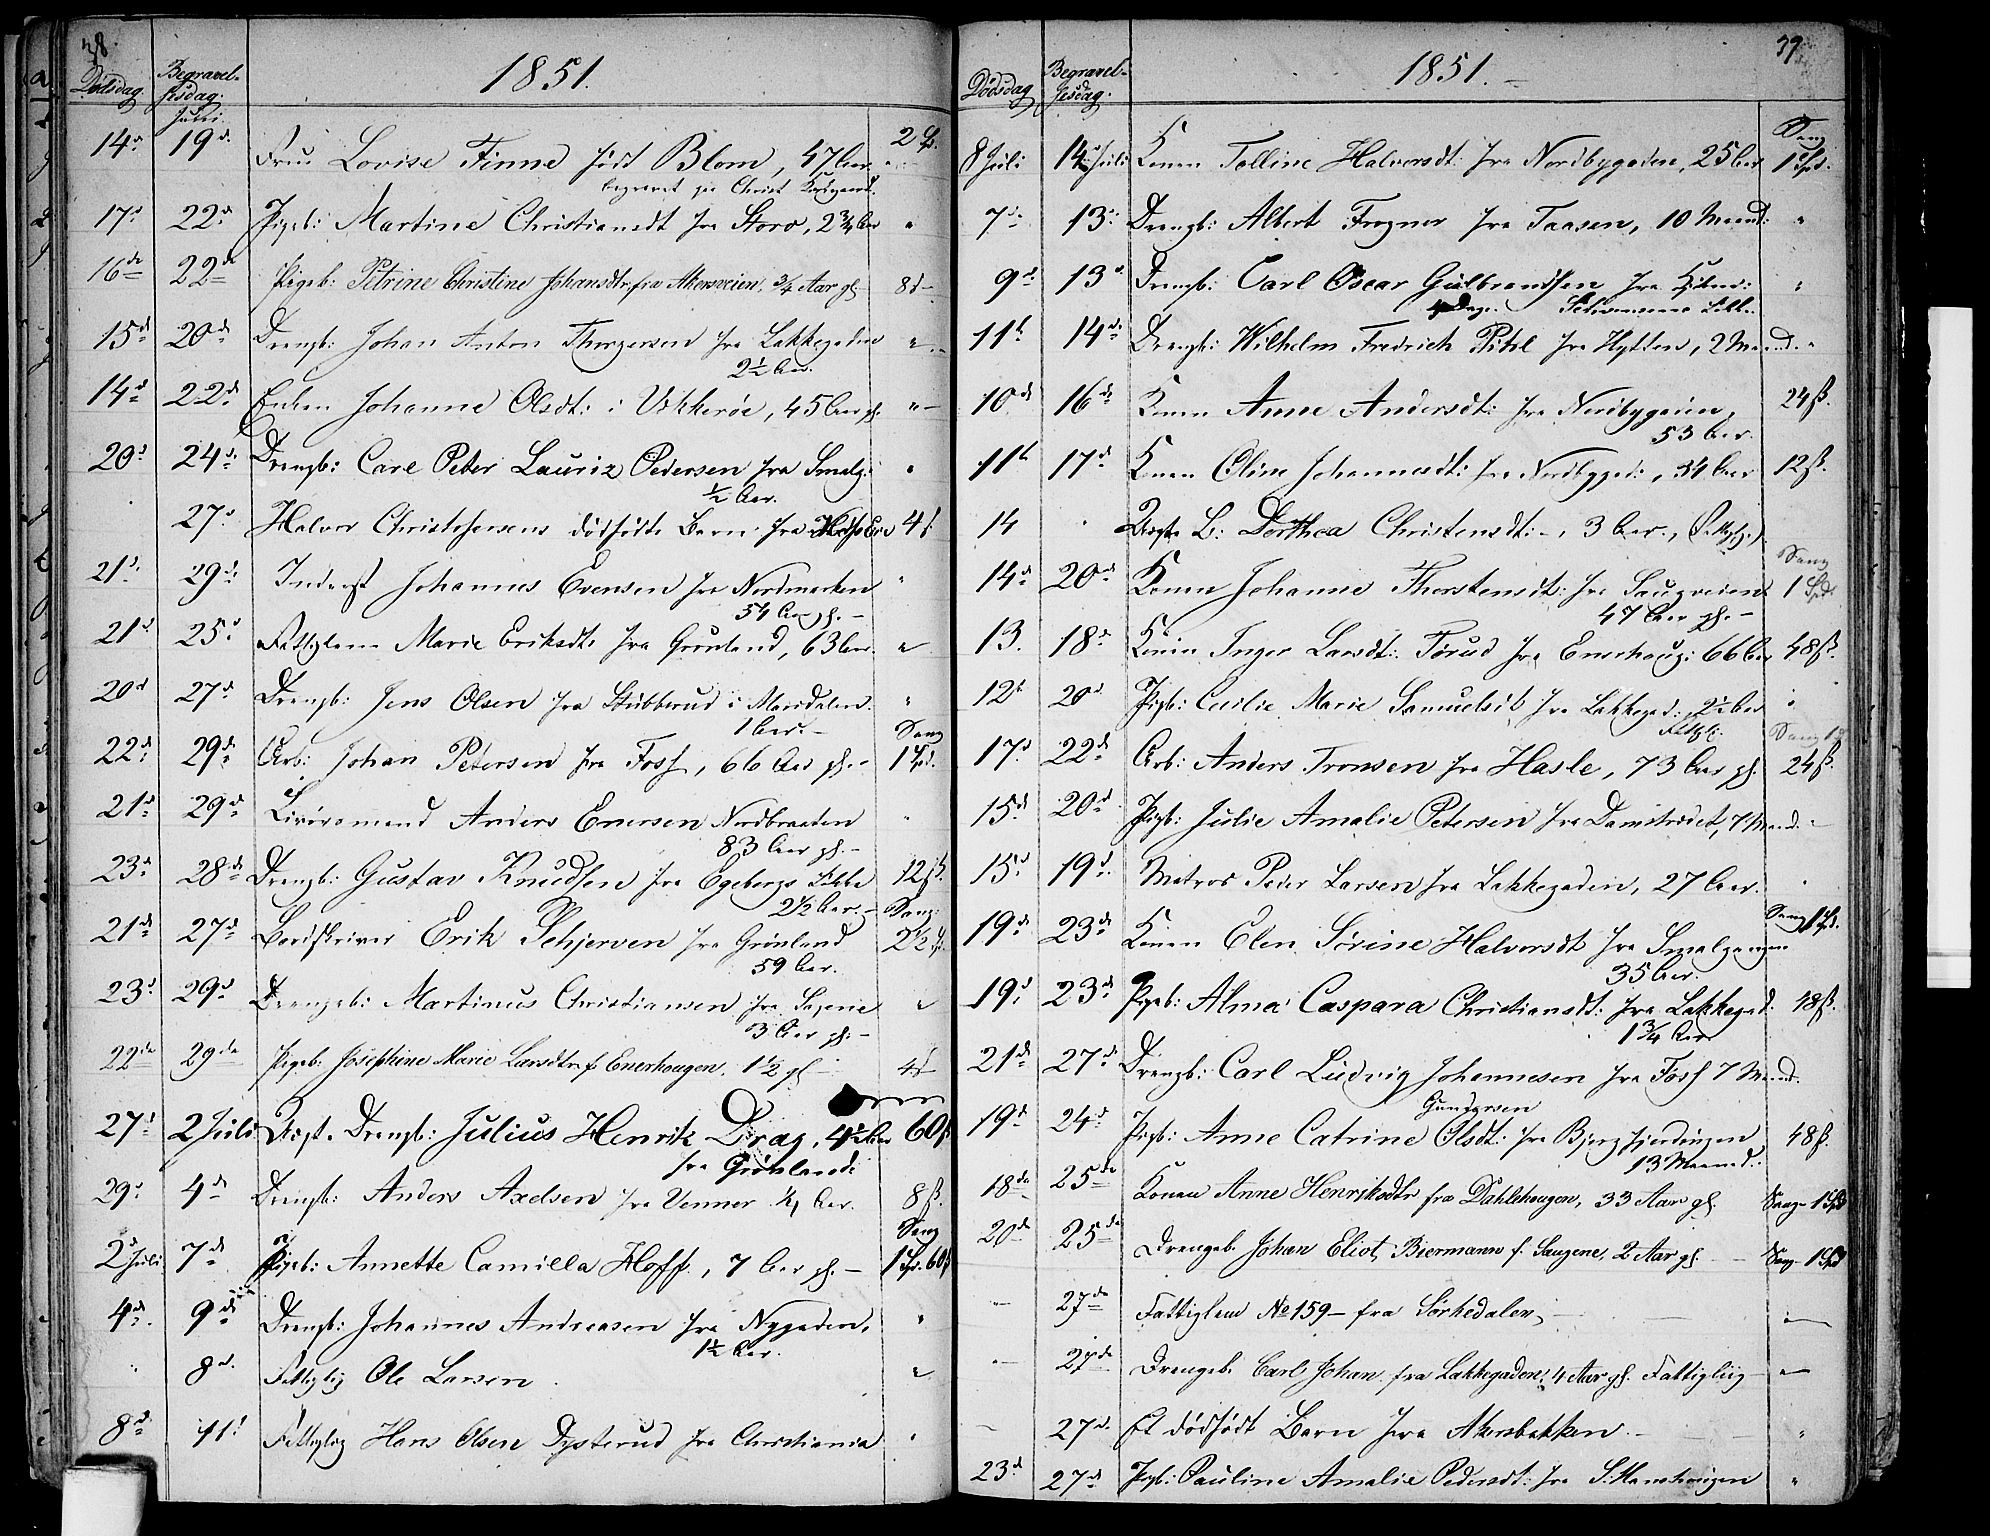 38.
Dödsdag. Begravelsesdag. 1851.
Juni
14d 19d. Frue Lovise Finne födt Blom, 47 Aar 2 Sp.
begravet paa Christ Kirkegaard.
17d 22d Pigeb: Martine Christiansdt fra Storo, 2 3/4 Aar "
16de 22de Pigeb. Petrine Christine Johansdtr. fra Akersveien. 3/4 Aar gl. 8 s
15d 20d Drengb: Johan Anton Thorgersen fra Lakkegaden "
2 1/2 Aar.
14d 22d. Enken Johanne Olsdt: i Vækkeröe, 45 Aar gl. "
20d 24d. Drengb: Carl Peter Lauriz Pedersen fra Smalg: "
1/2 Aar.
27d Halvor Christophersens dödfödte Barn fra 4 s
21d. 29d. Inderst Johannes Evensen fra Nordmarken "
54 Aar gl. –
21d 25d Fattiglem Marie Eriksdt. fra Grönland, 63 Aar. "
20d 27d Drengb: Jens Olsen fra Stubberud i Maridalen. "
1 Aar. – Sang
22d. 29d. Arb: Johan Petersen fra Foss, 66 Aar gl. – 1 Spd.
21d 29d Anders Enersen Nordbraaten "
83 Aar gl. –
23d 28d Drengb: Gustav Knudsen fra Egebergs Lökke 12 ß.
2 1/2 Aar. – Sang.
21d 27d Bordskriver Erik Schjerven fra Grönland 2 1/2 Sp.
59 Aar.
23d 29d Drengeb: Martinus Christiansen fra Sagene "
3 Aar gl. –
22de 29de Pigeb. Josephine Marie Larsdtr. f. Enerhougen. 1 1/2 gl – 4 s
27d 2 Juli Uægt. Drengb: Julius Henrik Drag, 4 1/2 Aar 60 ß
fra Grönland:
29d 4d Drengb: Anders Axelsen fra Venner 1/4 Aar. 8 ß.
Sang
2d Juli 7d Pigeb: Annette Camilla Hoff, 7 Aar gl. – 1 Sp. 60 ß
4d. 9d Drengb: Johannes Andreasen fra Nygaden, "
1 1/2 Aar.
" 8d. Fattiglig Ole Larsen. "
8d 11d Fattiglig Hans Olsen Dysterud fra Christiania "
39.
Dödsdag Begravelsesdag. 1851. –
Sang
8 Juli 14 Juli Konen Tolline Halvorsdt: fra Nordbygaden, 25 Aar 1 Spd.
7d 13d Drengb: Albert Frogner fra Taasen, 10 Maand: "
9d. 13d Drengb: Carl Oscar Gulbrandsen fra "
4 Dage.
11t 14d Drengb: Wilhelm Fredrich Pihl fra Hytten, 2 Maand. "
10d 16d Konen Anne Andersdt: fra Nordbygaden, 24 ß.
53 Aar.
11t 17d Konen Oline Johannesdt: fra Nordbygad:, 54 Aar 12 ß.
14 " Uægte B: Dorthea Christensdt: –, 3 Aar.,
Sang
14d 20d Konen Johanne Thorstensdt: fra Saugveien 1 Spd
47 Aar gl. –
13. 18d Konen Inger Larsdt: Törud fra Enerhoug: 66 Aar 48 ß.
12t 20d Pigb: Cecilie Marie Samuelsdt fra Lakkegad: 2 1/2 Aar "
Fattigl:
17d 22d Arb: Anders Tronsen fra Hasle, 73 Aar gl. 24 ß.
15d 20d Pigb: Julie Amalie Petersen fra Damstrædet, 7 Maand. "
15d 19d. Matros Peder Larsen fra Lakkegaden, 27 Aar. "
Sang 1 Sp.
19d 23d Konen Elen Sörine Halvorsdt fra Smalgangen
35 Aar.
19d 23d Pigeb: Alma Caspara Christiansdt: fra Lakkegad: 48 ß.
1 3/4 Aar
21d 27d Drengb: Carl Ludvig Johannesen fra Foss 7 Maand.
Gundersen
19d 24d Pigb: Anne Catrine Olsdt: fra Bjergfjerdingen 48 ß.
13 Maaned:
18de 25de Konen Anne Henriksdtr fra Dahlehougen, 33 Aar gl. Sang – 1 Spd
20de 25de Drengeb. Johan Eliot Biermann f. Saugene, 2 Aar gl. – Sang – 1 Spd
– 27de Fattiglem No 159 – fra Sörkedalen, – "
– 27de Drengeb. Carl Johan. fra Lakkegaden, 4 Aar gl. Fattigliig – "
– 27d. Et dödfödt Barn fra Akersbakken. – "
23d 27d Pigb: Pauline Amalie Pedersdt: fra St. Hanshougen "